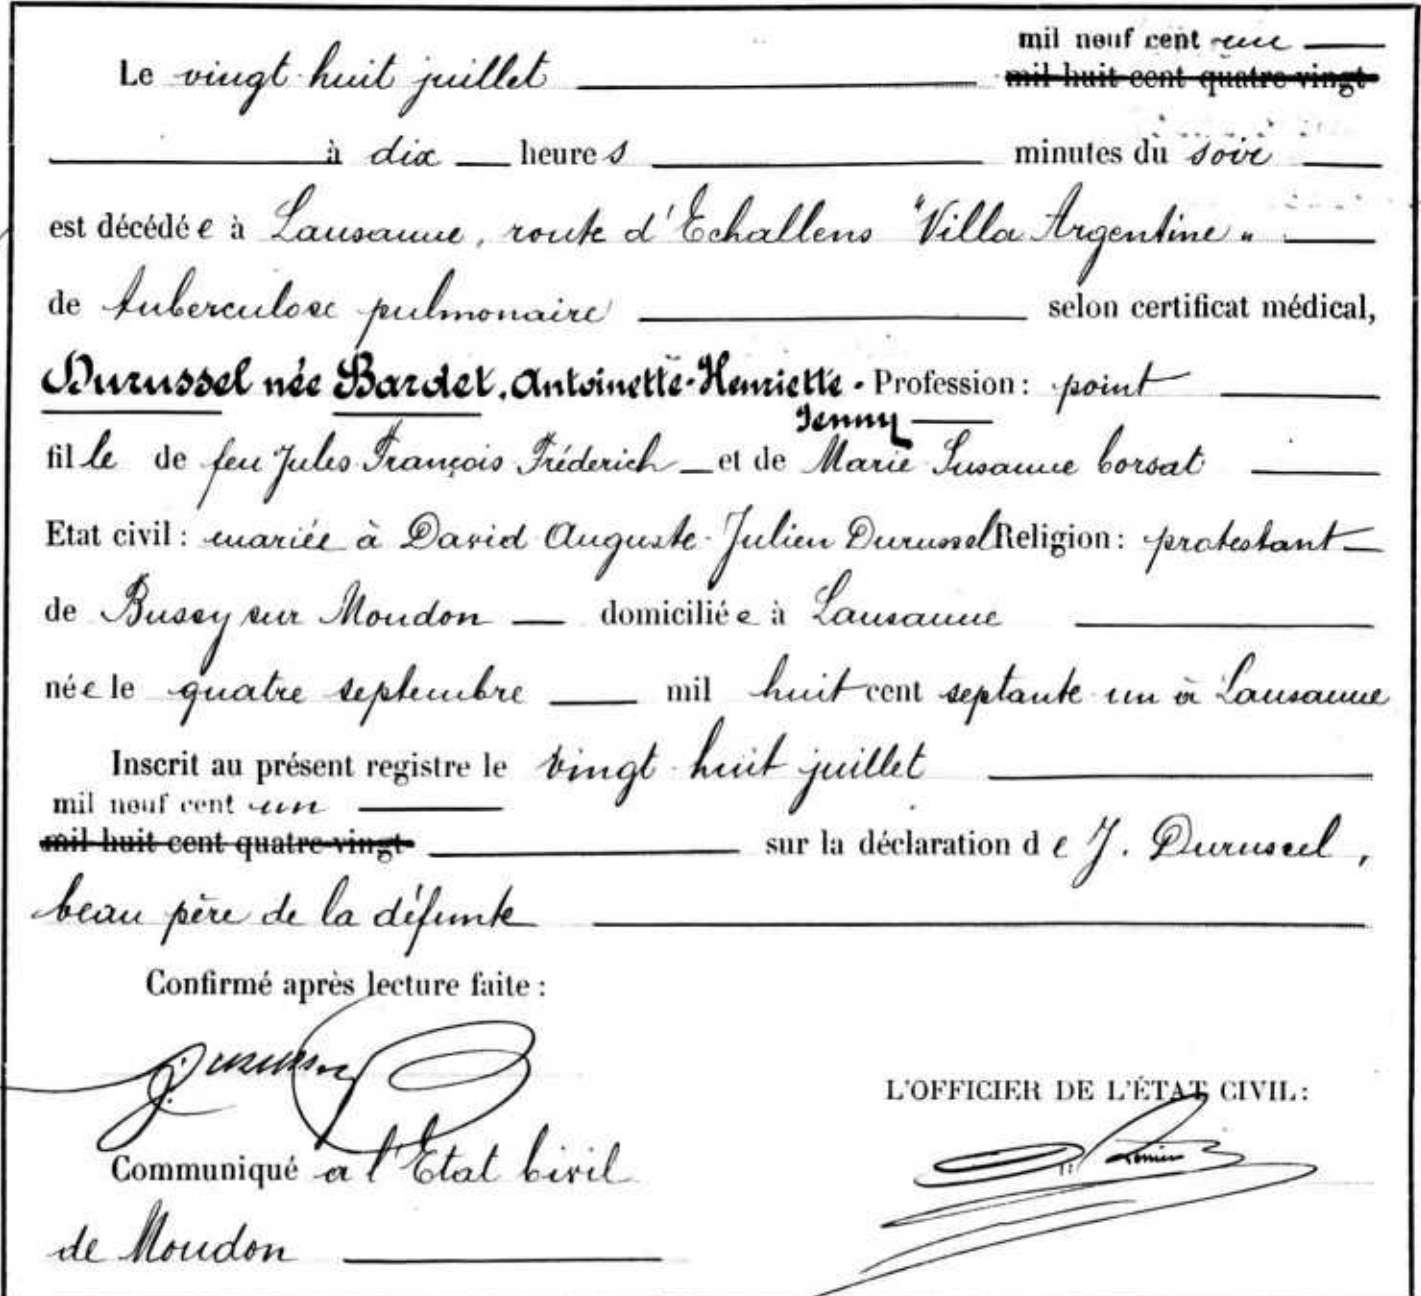 mil neuf cent un
Le vingt huit juillet mil huit cent quatre-vingt
à dix heures minutes du soir
est décédée à Lausanne, route d'Echallens "Villa Argentine"
de tuberculose pulmonaire selon certificat médical,
Durussel née Bardet, Antoinette-Henriette- Profession : point
Jenny
fille de feu Jules François Fréderich et de Marie Susanne Corsat
Etat civil : mariée à David Auguste-Julien Durussel Religion : protestant
de Bussy sur Moudon domiciliée à Lausanne
née le quatre septembre mil huit cent septante un à Lausanne
Inscrit au présent registre le vingt-huit juillet
mil neuf cent un
mil huit cent quatre-vingt sur la déclaration de J. Durussel,
beau père de la défunte
Confirmé après lecture faite :
J. Durussel
L'OFFICIER DE L'ÉTAT CIVIL :
Communiqué à l'Etat Civil
de Moudon